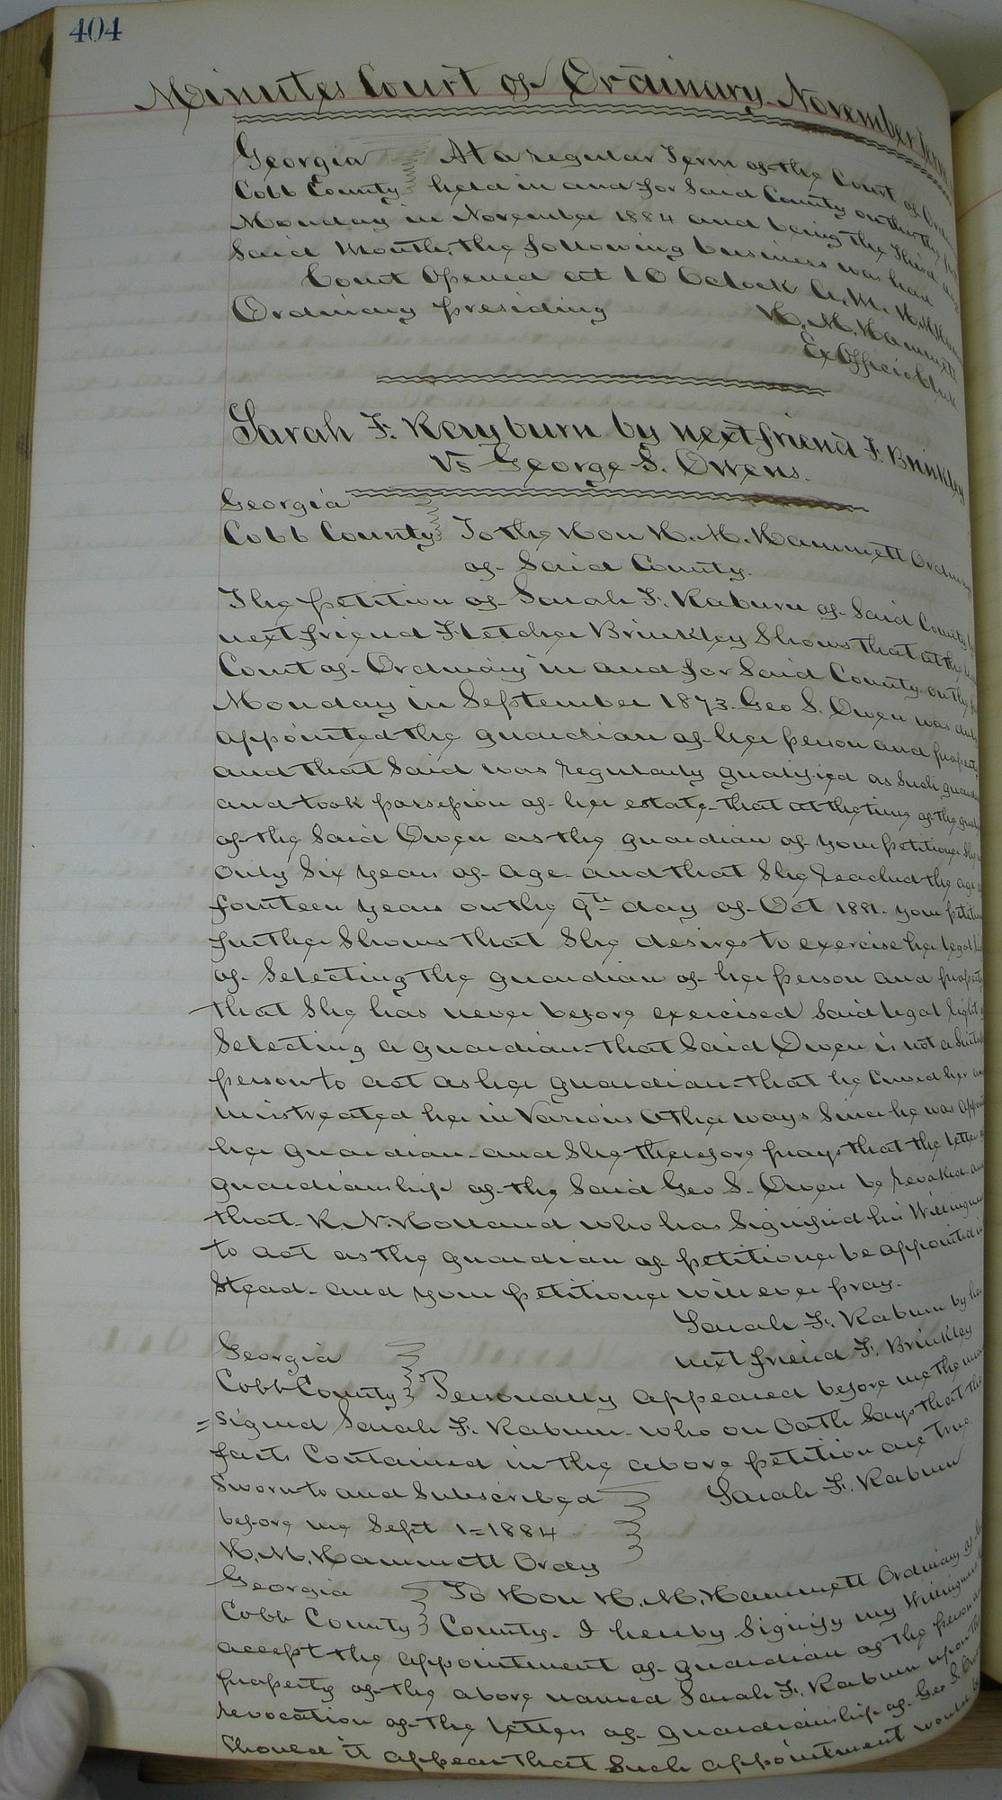 404
Minutes Court of Ordinary November Term
Georgia At a regular Term of the Court of
Cobb County held in and for Said County on the
Monday in November 1884 and being the Third day
Said Month, the following business was had
Court Opened at 10 Oclock A.M. H.M.
Ordinary presiding H. M. Hammett
Ex Officio Clerk
Sarah F. Rayburn by next friend F. Brinkley
Vs George S. Owens.
Georgia
Cobb County To the Hon H. M. Hammett Ordinary
of Said County.
The petition of Sarah F. Raburn of Said County by
next friend Fletcher Brinkley Shows that at the
Court of Ordinary in and for Said County on the
Monday in September 1873. Geo S. Owen was duly
appointed the guardian of her person and property
and that Said was regularly qualified as Such
and took possession of her estate that at the time of the
of the Said Owen as the guardian of your petitioner She
only Six years of age and that She reached the age
fourteen years on the 9th day of Oct 1881. your
further Shows that She desires to exercise her legal
of Selecting the guardian of her person and property
that She has never before exercised Said legal right
Selecting a guardian that Said Owen is not a
person to act as her guardian that he Cursed her
mistreated her in Various Other ways Since he was
her guardian and She therefore prays that the letters
guardianship of the Said Geo S. Owen be revoked and
that R. N. Holland who has Signified his Willingness
to act as the guardian of petitioner be appointed in
Stead and your petitioner will ever pray.
Sarah F. Raburn by her
next friend F. Brinkley
Georgia
Cobb County Personally appeared before me the
= Signed Sarah F. Raburn who on Oath Says that the
facts Contained in the above petition are True
Sworn to and Subscribed Sarah F. Raburn
before me Sept 1=1884
H. M. Hammett Ordy
Georgia To Hon H. M. Hammett Ordinary of
Cobb County County. I hereby Signify my Willingness
accept the appointment of guardian of the person
property of the above named Sarah F. Raburn upon the
revocation of the letters of guardianship of Geo S.
Should it appear that Such appointment would